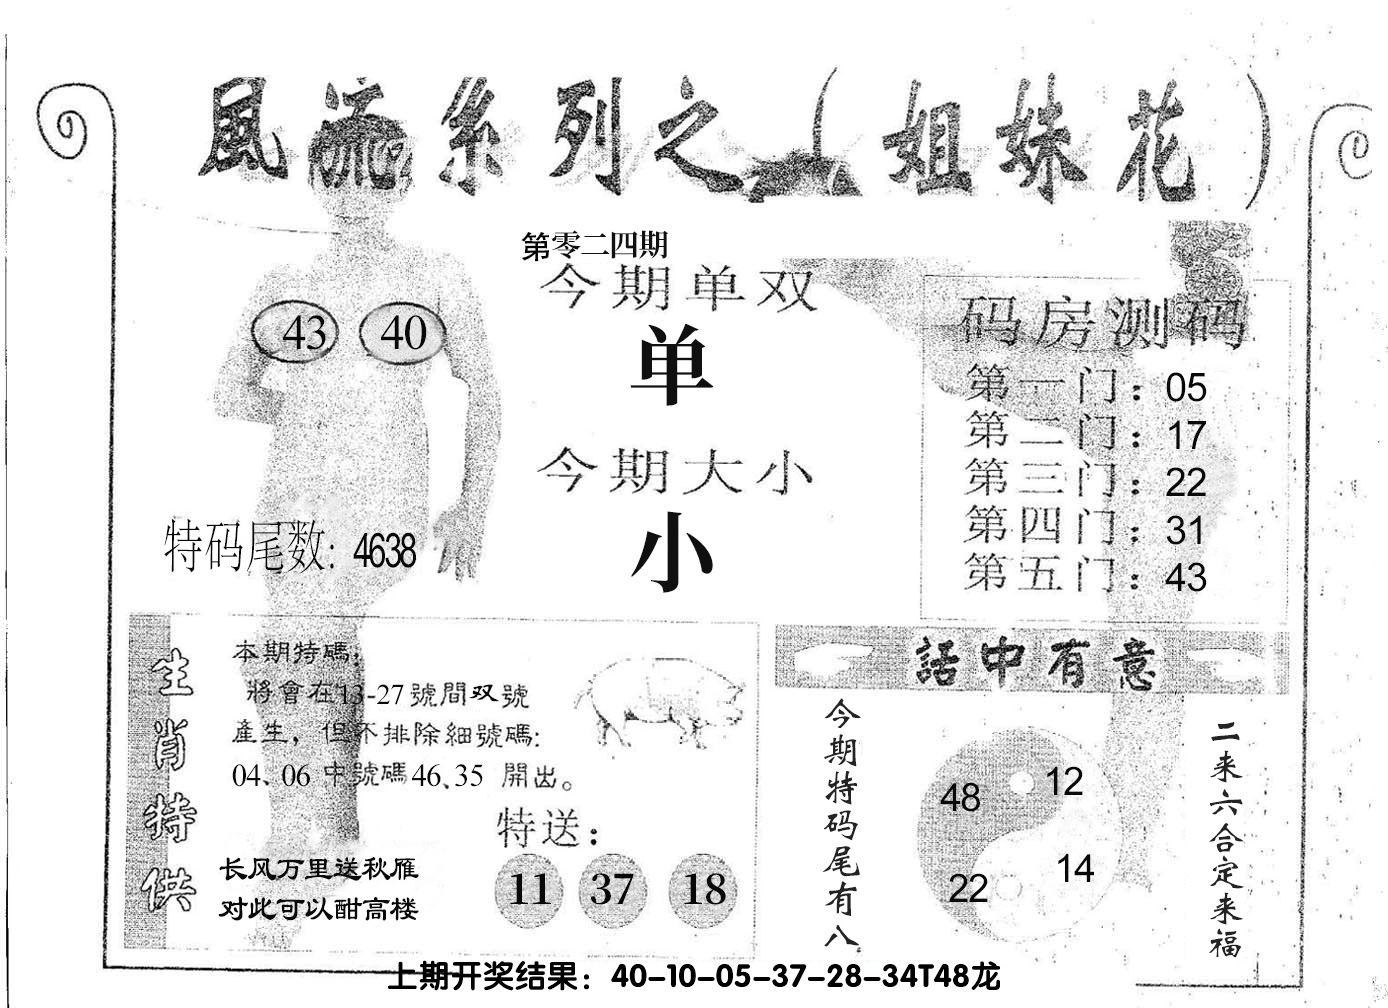 風流系列之（姐妹花）
第零二四期
今期单双
单
今期大小
小
43 40
特码尾数: 4638
码房测码
第一门：05
第二门：17
第三门：22
第四门：31
第五门：43
生肖特供
本期特碼，
將會在13-27號間双號
產生，但不排除細號碼:
04、06 中號碼46、35 開出。
特送：
11 37 18
长风万里送秋雁
对此可以酣高楼
話中有意
今期特码尾有八
48 12
22 14
二来六合定来福
上期开奖结果：40-10-05-37-28-34T48龙